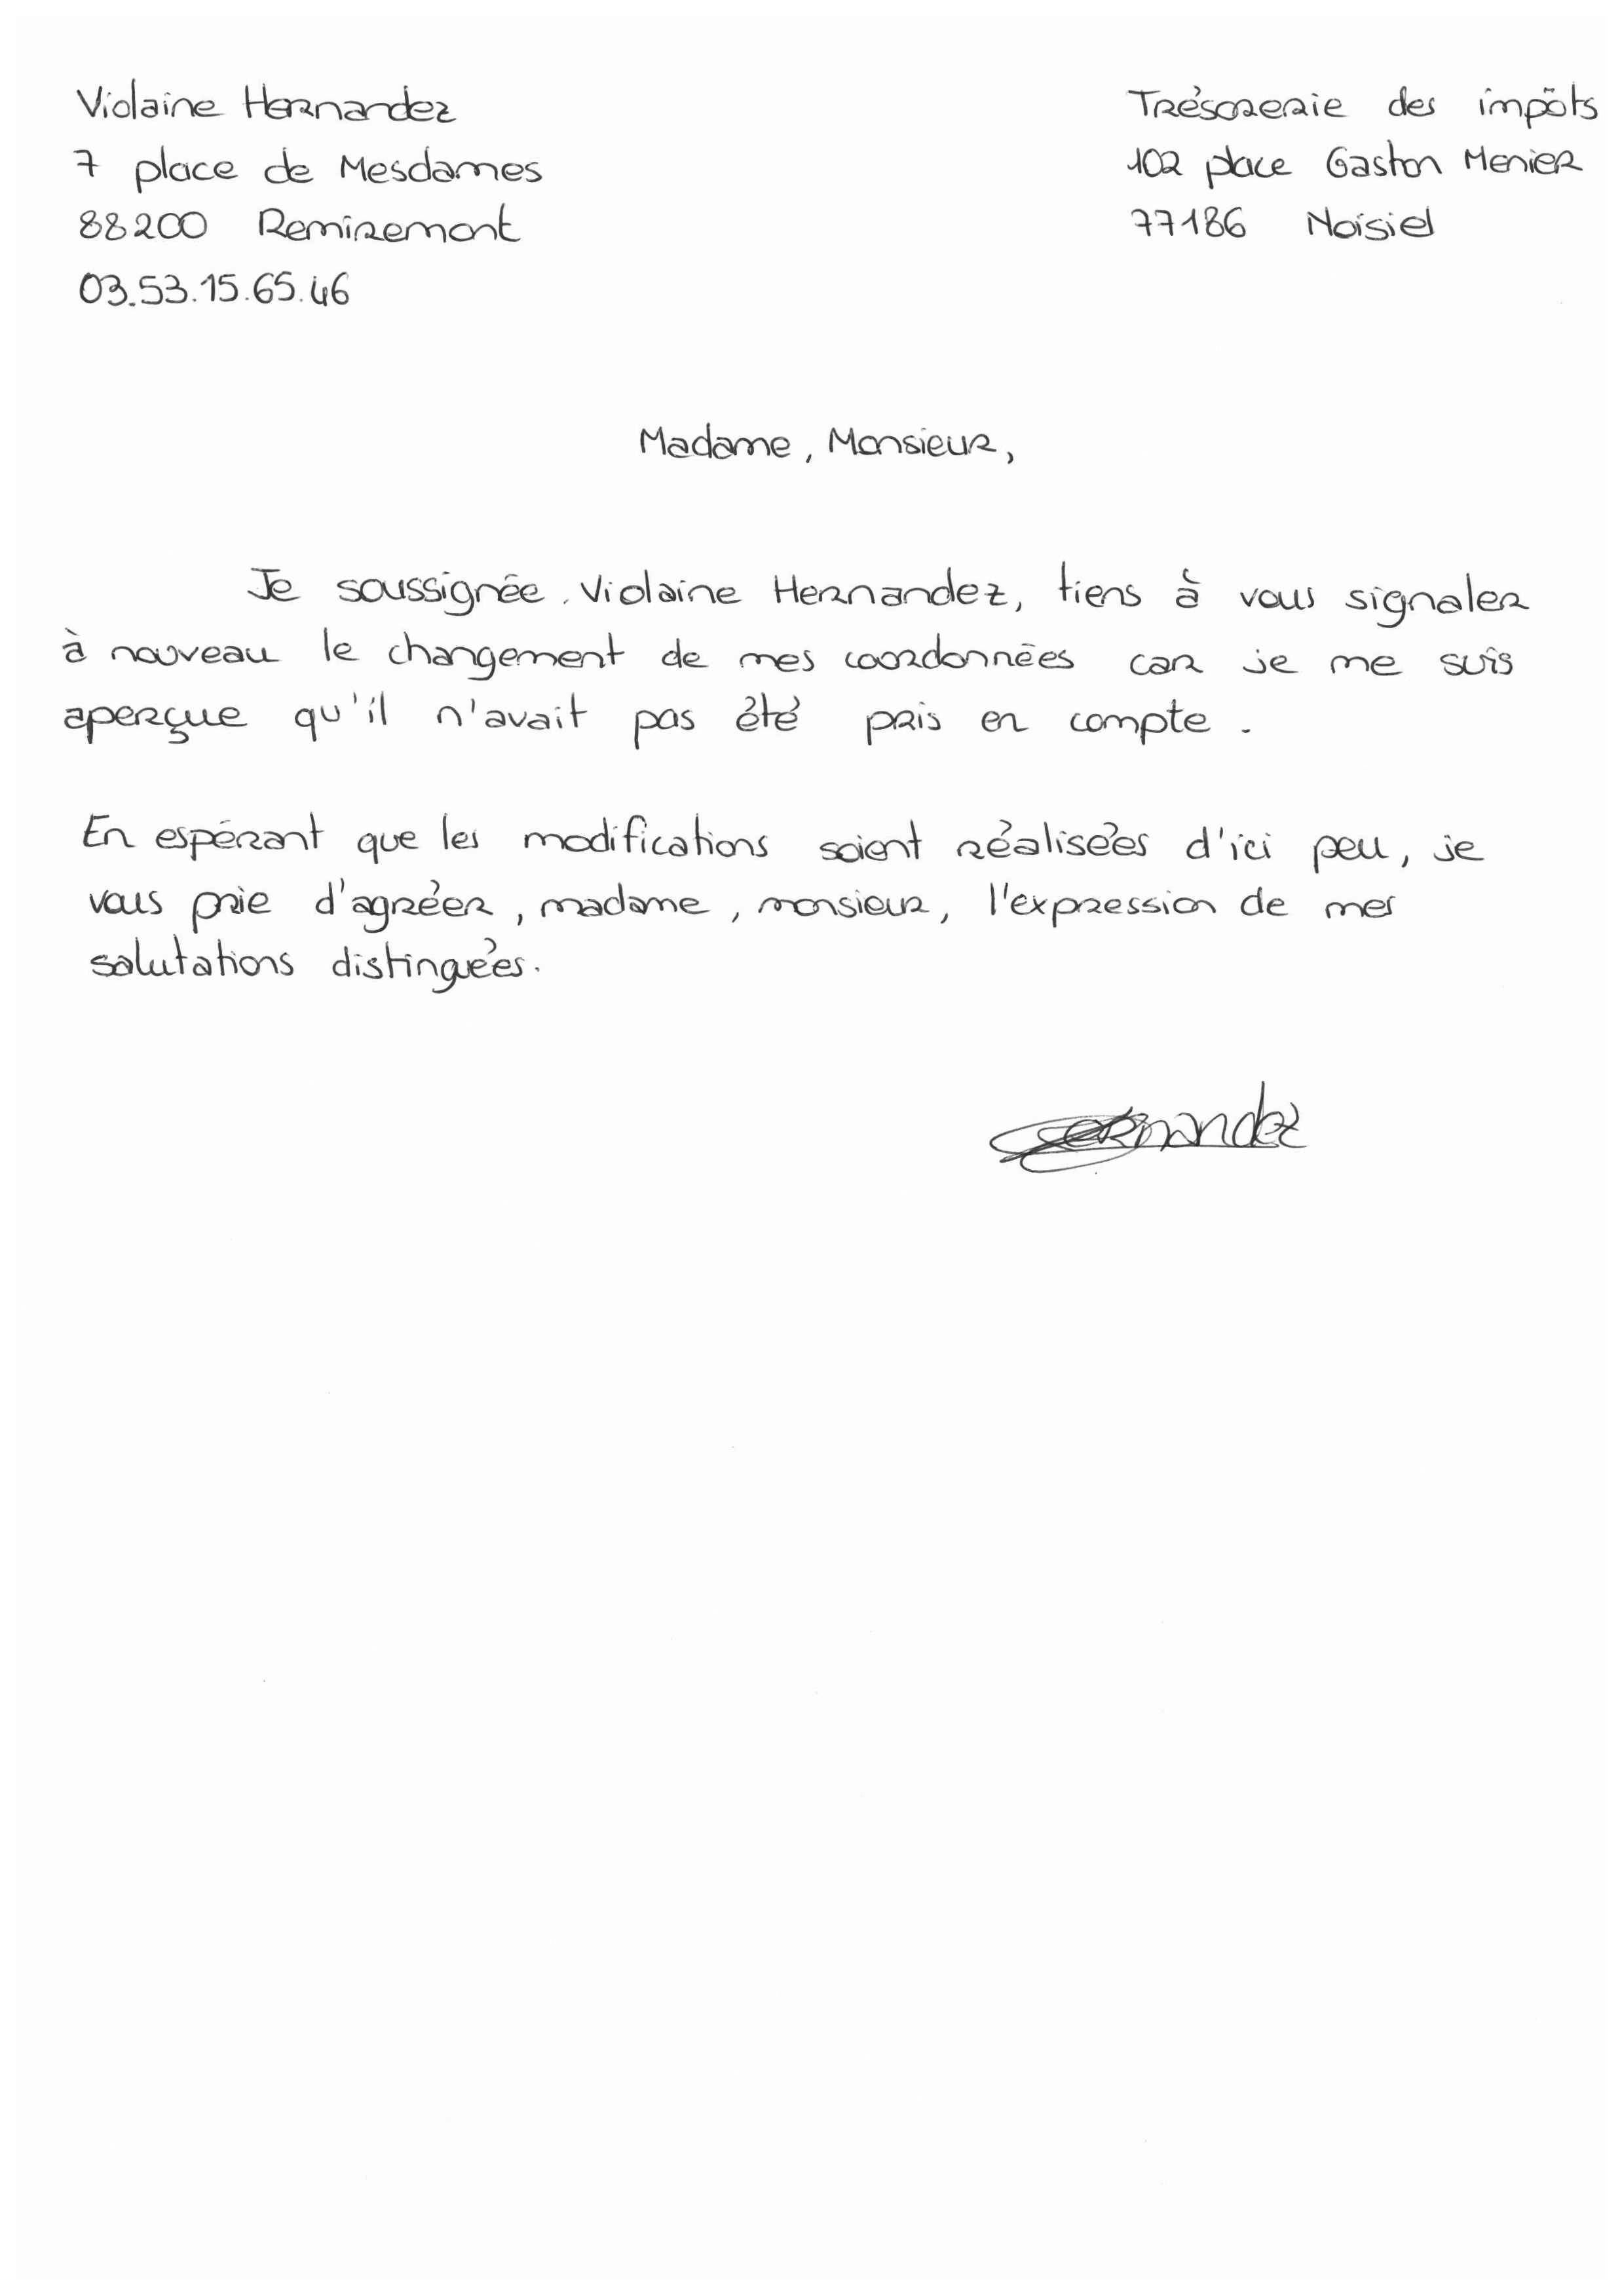 Violaine Hernandez
7 place de Mesdames
88200 Remiremont
03.53.15.65.46
Trésorerie des impôts
102 place Gaston Menier
77186 Noisiel
Madame, Monsieur,
Je soussignée. Violaine Hernandez, tiens à vous signaler
à nouveau le changement de mes coordonnées car je me suis
aperçue qu'il n'avait pas été pris en compte.
En espérant que les modifications soient réalisées d'ici peu, je
vous prie d'agréer, madame, monsieur, l'expression de mes
salutations distinguées.
Hernandez